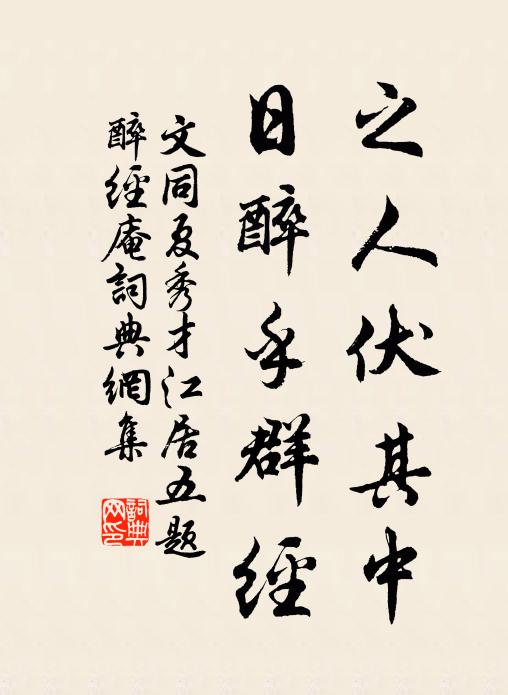 之人伏其中
日醉乎群經
文同夏秀才江居五題
醉經庵詞典網集
詞典
网印